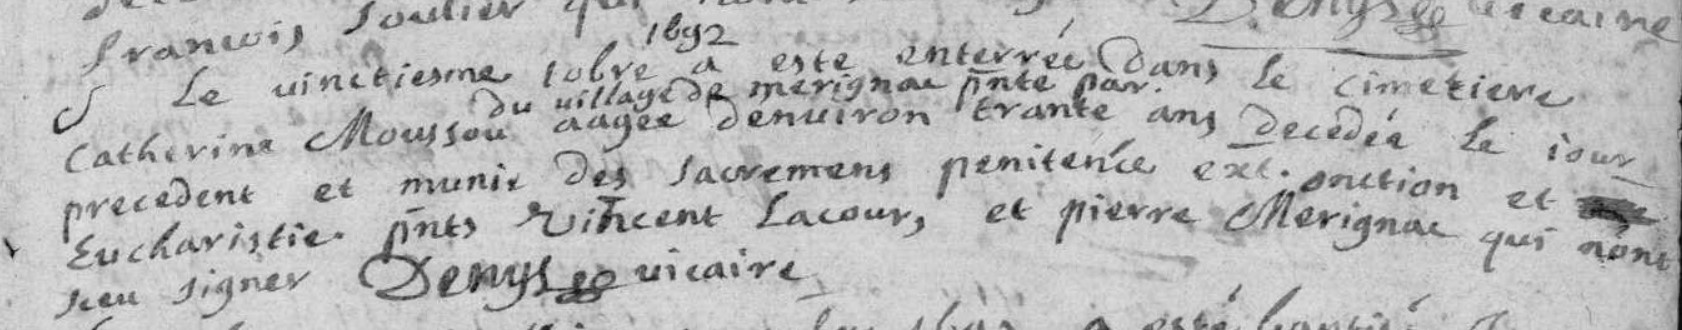 francois soulier qui Denys vicaire
1692
Le vinctiesme 10bre a esté enterrée dans le cimetiere
du village de merignac pnte par.
Catherine Moussou aagée denuiron trante ans decedée le iour
precedent et munie des sacremens penitence ext. onction et
Eucharistie. pnts Vincent Lacour, et pierre Merignac qui nont
sceu signer Denys vicaire
a esté baptisé